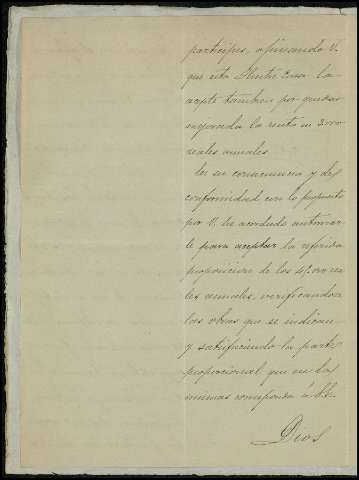 participes, opinando V.
que esta Ilustre Casa la
acepte tambien por quedar
mejorada la renta en 3.000
reales anuales.
En su consecuencia y de
conformidad con lo propuesto
por V. he acordado autorizar
le para aceptar la referida
proposicion de los 4,000 rea
les anuales, verificandose
las obras que se indican
y satisfaciendo la parte
proporcional que en las
mismas corresponda á
Dios